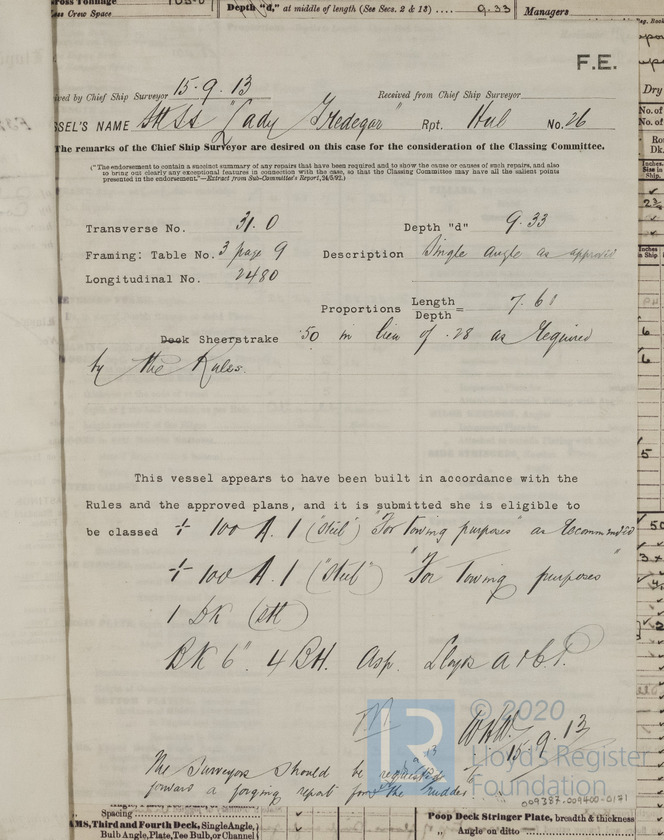 ross Tonnage
Less Crew Space
Depth "d," at middle of length (See Secs. 2 & 13) .... 9.33
Managers
F.E.
ived by Chief Ship Surveyor 15.9.13 Received from Chief Ship Surveyor
SSEL'S NAME "Lady Tredegar" Rpt. Hul No. 26
The remarks of the Chief Ship Surveyor are desired on this case for the consideration of the Classing Committee.
("The endorsement to contain a succinct summary of any repairs that have been required and to show the cause or causes of such repairs, and also
to bring out clearly any exceptional features in connection with the case, so that the Classing Committee may have all the salient points
presented in the endorsement."—Extract from Sub-Committee's Report, 24/5/92.)
Transverse No. 31.0 Depth "d" 9.33
Framing: Table No. 3 page 9 Description Single angle as approved
Longitudinal No. 2480
Proportions Length
Depth = 7.61
Deck Sheerstrake .50 in lieu of .28 as required
by the Rules.
This vessel appears to have been built in accordance with the
Rules and the approved plans, and it is submitted she is eligible to
be classed + 100 A.1 (Steel) "For Towing purposes" as recommended
+ 100 A.1 ("Steel") "For Towing purposes"
1 Dk (Stl)
BK 6" 4 BH. Asp. Lloyds A & C.P.
15.9.13
The Surveyors should be requested to
forward a forging report for the rudder
© 2020
Lloyd's Register
Foundation
009387-009400-0171
Spacing
AMS, Third and Fourth Deck, Single Angle,
Bulb Angle, Plate, Tee Bulb, or Channel
Poop Deck Stringer Plate, breadth & thickness
„ Angle on ditto